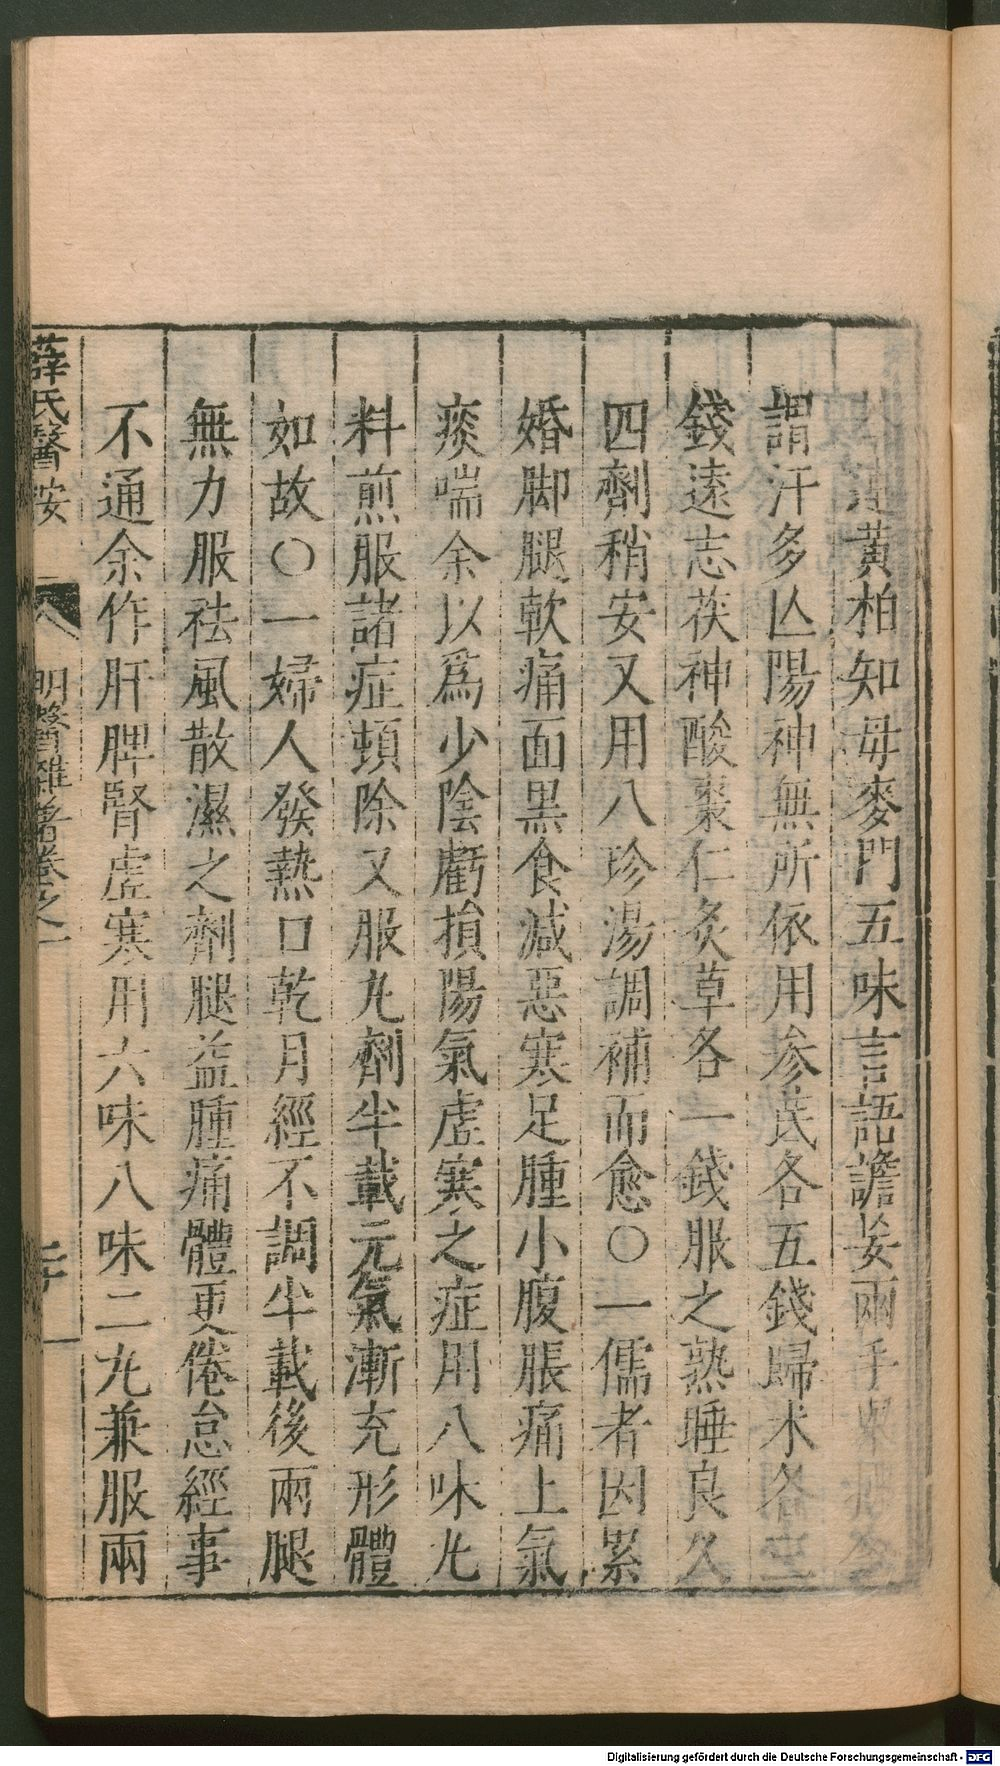 連黃柏知母麥門五味言語譫妄兩手
謂汗多亾陽神無所依用參芪各五錢歸术各三
錢遠志茯神酸棗仁炙草各一錢服之熟睡良久
四劑稍安又用八珍湯調補而愈○一儒者因累
婚脚腿軟痛面黑食減惡寒足腫小腹脹痛上氣
痰喘余以爲少陰虧損陽氣虛寒之症用八味𠃵
料煎服諸症頓除又服𠃵劑半載元氣漸充形體
如故○一婦人發熱口乾月經不調半載後兩腿
無力服祛風散濕之劑腿益腫痛體更倦怠經事
不通余作肝脾腎虛寒用六味八味二𠃵兼服兩
薛氏醫按 明醫雜著卷之一 二十
Digitalisierung gefördert durch die Deutsche Forschungsgemeinschaft - DFG